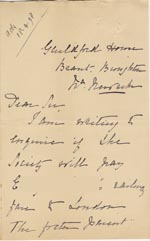 Guildford House
Beant. Broughton
Nr. Newark
Dear Sir
I am writing to
enquire if the
Society will pay
E railway
fare to London
The foster Parent